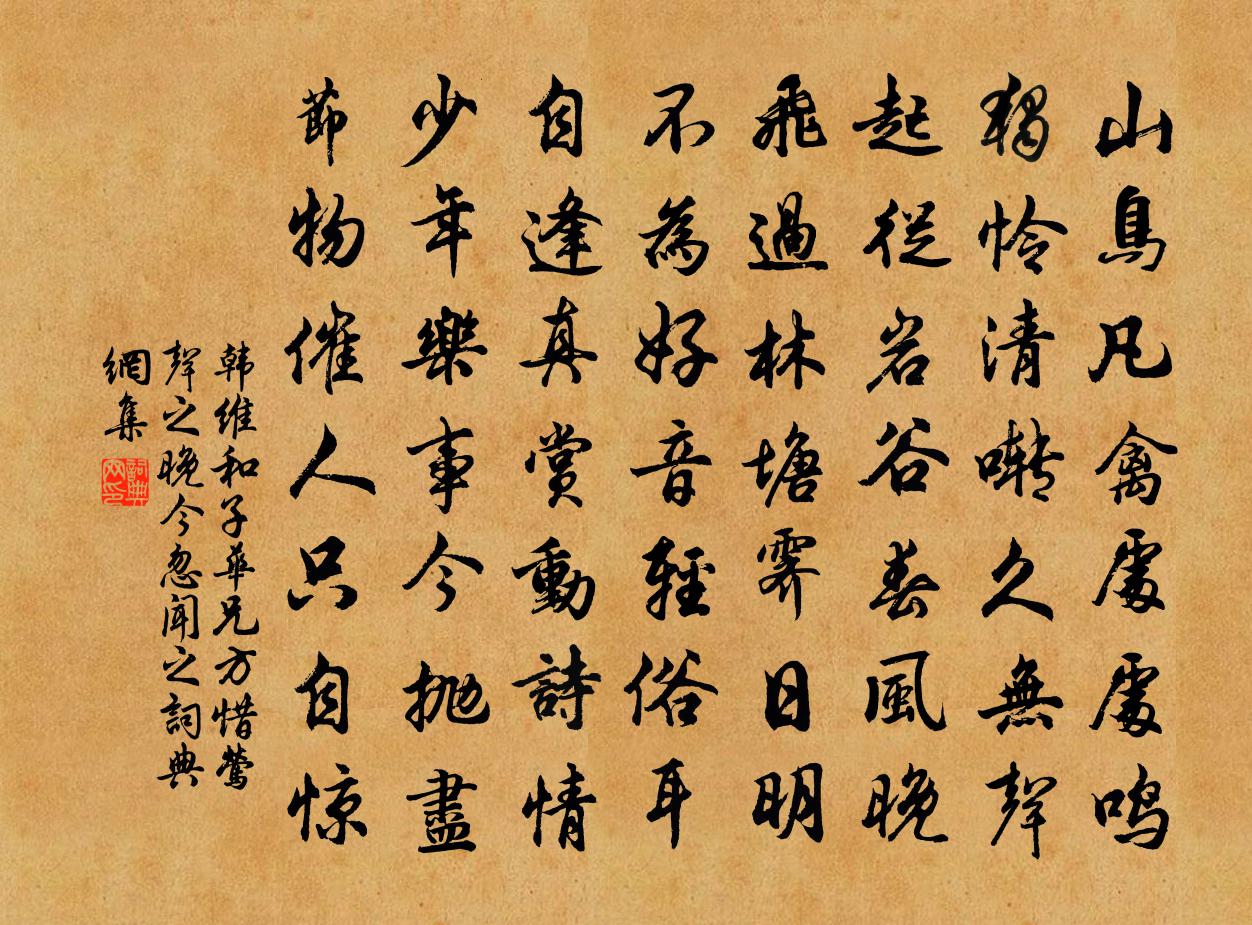 山鳥凡禽處處鳴
獨憐清囀久無聲
起從岩谷春風晚
飛過林塘霽日明
不為好音輕俗耳
自逢真賞動詩情
少年樂事今拋盡
節物催人只自惊
韩维和子華兄方惜鶯
聲之晚今忽聞之詞典
網集
詞典网印